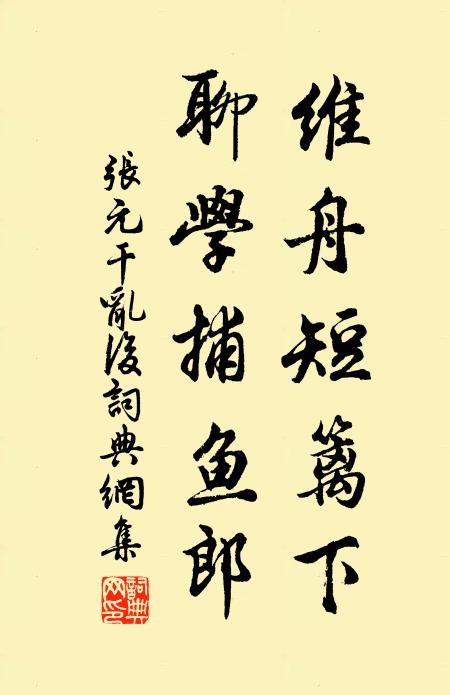 维舟短篱下
聊學捕鱼郎
張元干亂後詞典網集
詞典网印